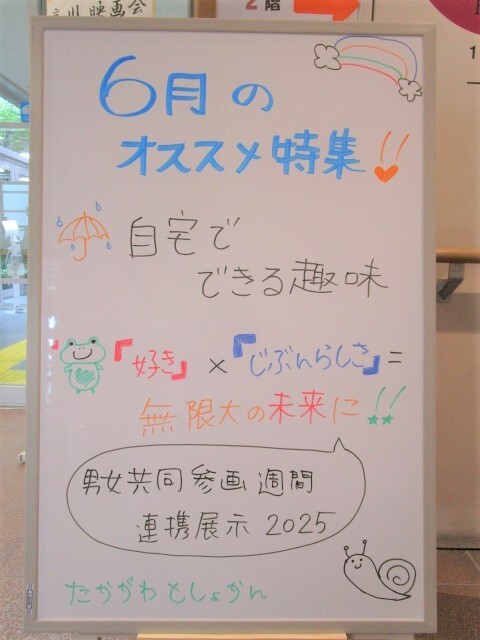 川映画会
2階
6月の
オススメ特集!!
自宅で
できる趣味
『好き』×『じぶんらしさ』=
無限大の未来に!!
男女共同参画週間
連携展示 2025
たかがわとしょかん